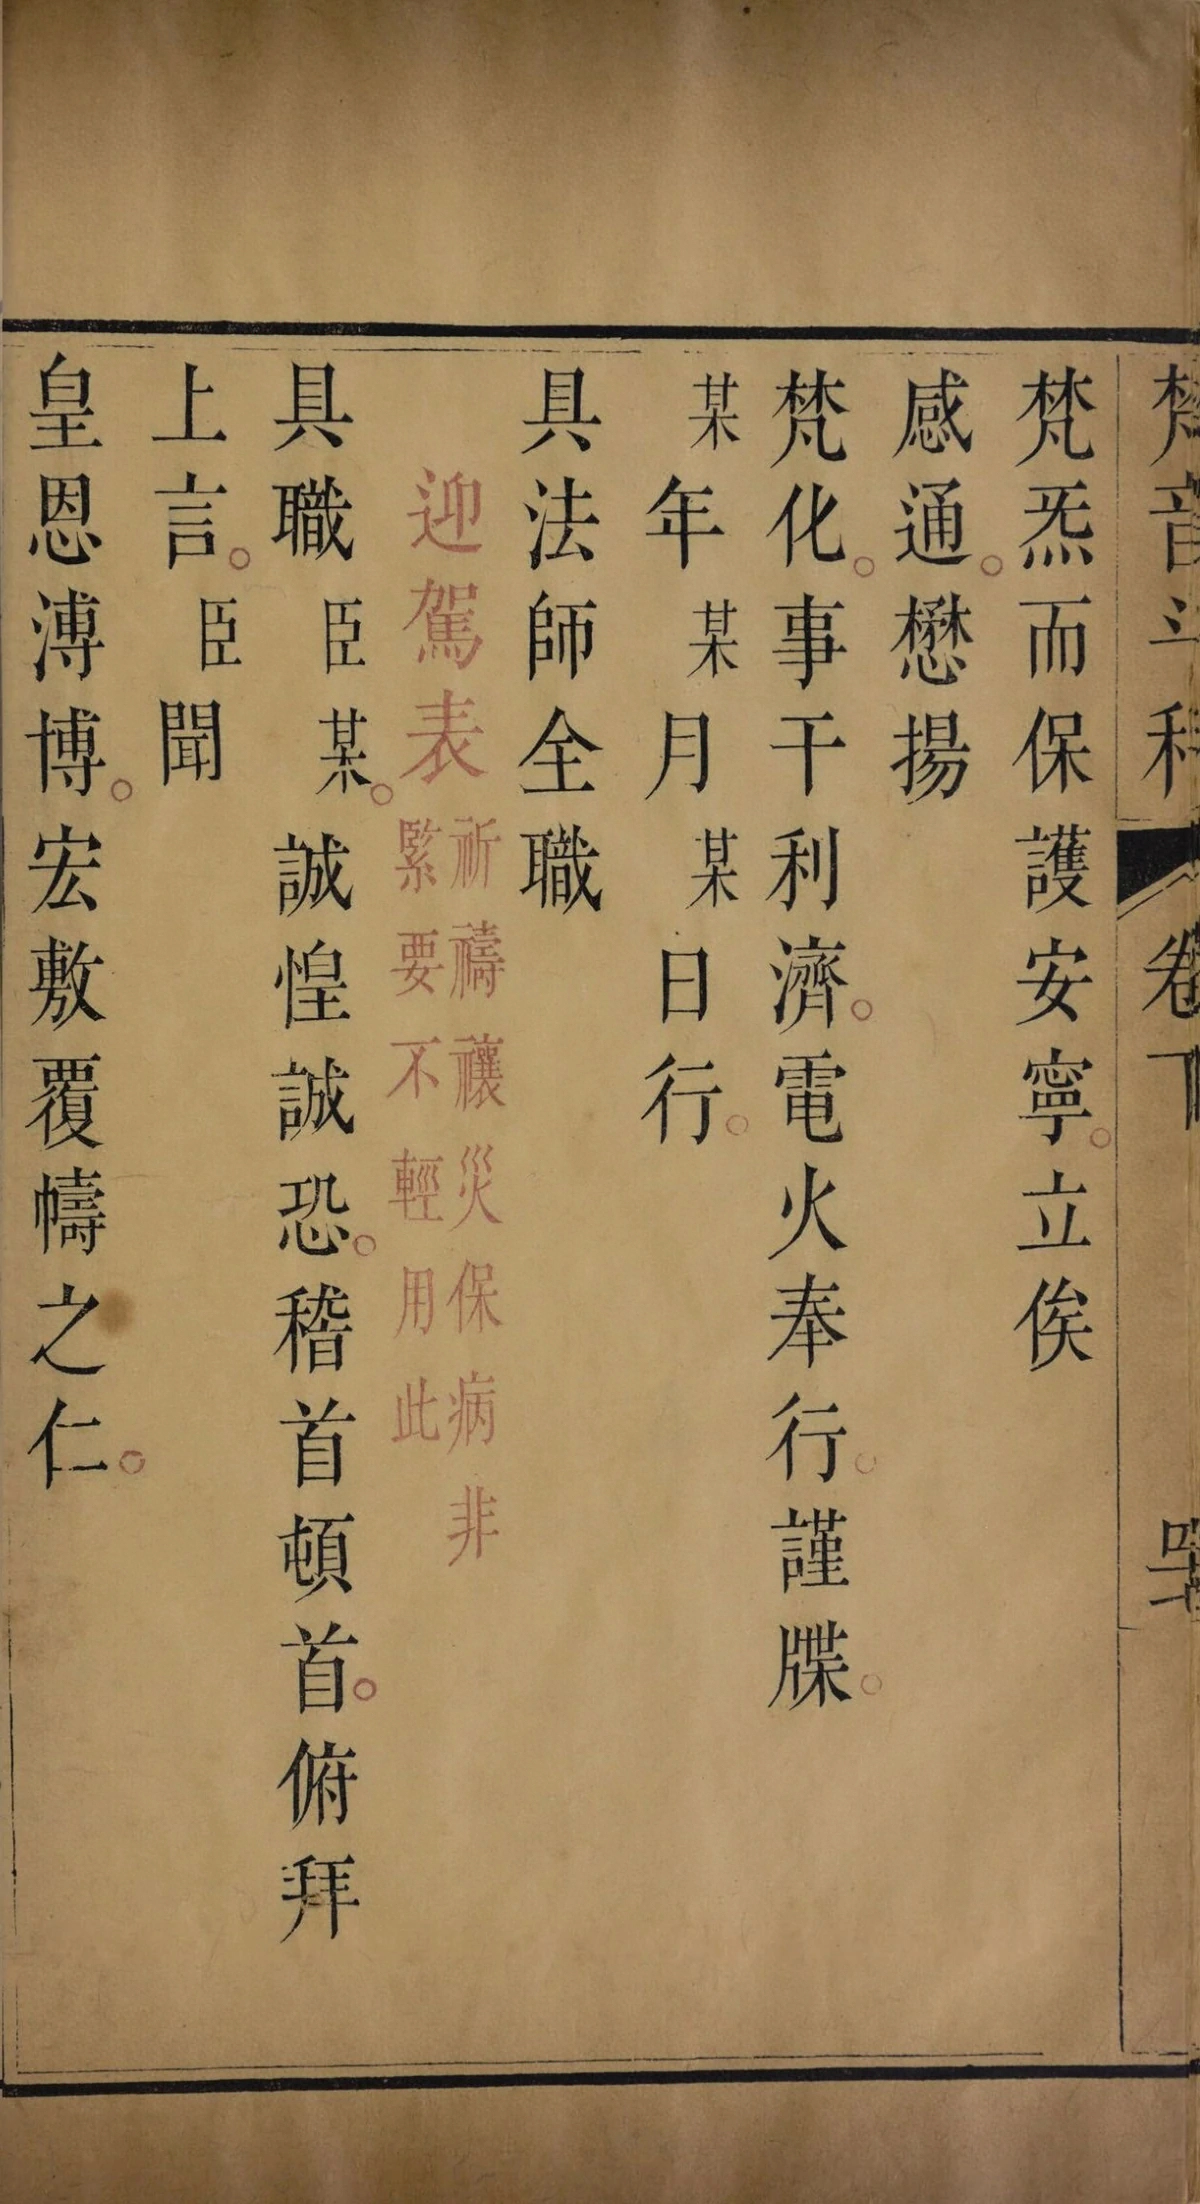 梵音斗科 卷下
梵炁而保護安寧。立俟
感通。懋揚
梵化。事干利濟。電火奉行。謹牒。
某年某月某日行。
具法師全職
迎駕表 祈禱禳災保病非
緊要不輕用此
具職臣某。誠惶誠恐。稽首頓首。俯拜
上言。臣聞
皇恩溥博。宏敷覆幬之仁。